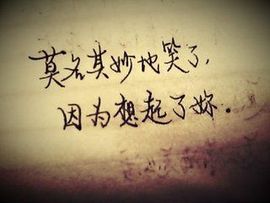 莫名其妙地笑了，
因为想起了妳．